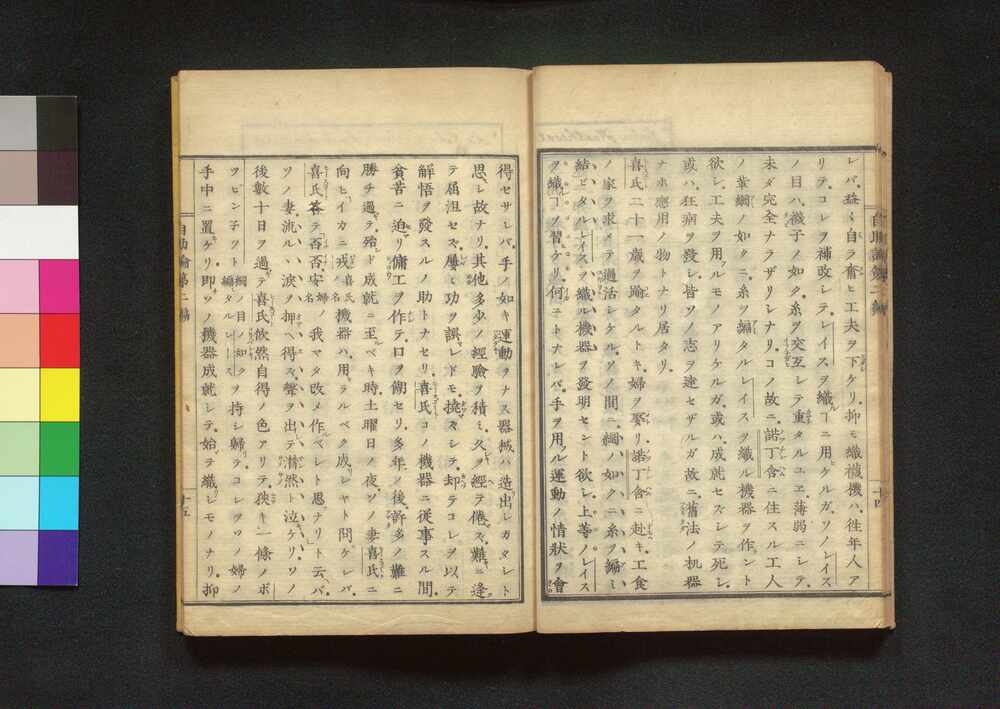 レバ益々自ラ奮ヒ工夫ヲ下ケリ抑モ織襪機ハ往年人ア
リテコレヲ補改シテレイスヲ織ーニ用ヒケルガソノレイス
ノ目ハ微子ノ如ク糸ヲ交互シテ重タルユヱ薄弱ニシテ
未ダ完全ナラザリシナリコノ故ニ諾丁含ニ住スル工人
ノ輩網ノ如クニ糸ヲ編タルレイスヲ織ル機器ヲ作ント
欲シ工夫ヲ用フルモノアリケルガ或ハ成就セズシテ死シ
或ハ狂病ヲ發シ皆ソノ志ヲ達セザルガ故ニ舊法ノ机器
ナホ應用ノ物トナリ居タリ
喜氏二十一歳ヲ踰タルトキ婦ヲ娶リ諾丁含ニ赴キ工食
ノ家ヲ求メテ過活シケルソノ間ニ網ノ如クニ糸ヲ編ミ
結ビタルレイスヲ織ル機器ヲ發明セント欲シ上等ノレイス
ヲ織コヲ習ケリ何ニトナレバ手ヲ用フル運動ノ情狀ヲ會
十四
得セサレバ手ノ如キ運動ヲナス器械ハ造出シガタシト
思シ故ナリ其他多少ノ經驗ヲ積ミ久ヲ經テ倦ズ難ニ逢
テ屈沮セズ屡ヒ功ヲ誤レドモ撓ズシテ却テコレヲ以テ
解悟ヲ發スルノ助トナセリ喜氏コノ機器ニ從事スル間
貧苦ニ迫リ傭工ヲ作テ口ヲ餬セリ多年ノ後許多ノ難ニ
勝チ過テ殆ド成就ニ至ベキ時土曜日ノ夜ソノ妻喜氏ニ
向ヒイカニ戎喜氏ノ名機器ハ用ラルベク成シヤト問ケレバ
喜氏答テ否否安婦ノ名我マタ改メ作ベシト思ナリト云バ
ソノ妻流ルヽ涙ヲ押ヘ得ズ聲ヲ出テ潸然ト泣ケリソノ
後數十日ヲ過テ喜氏欣然自得ノ色アリテ狹キ一條ノボ
ツビン子ツト網ノ目ノ如ク編タルレースヲ持シ歸テコレヲソノ婦ノ
手中ニ置ケリ即ソノ機器成就シテ始テ織シモノナリ抑
自助論第二編
十五